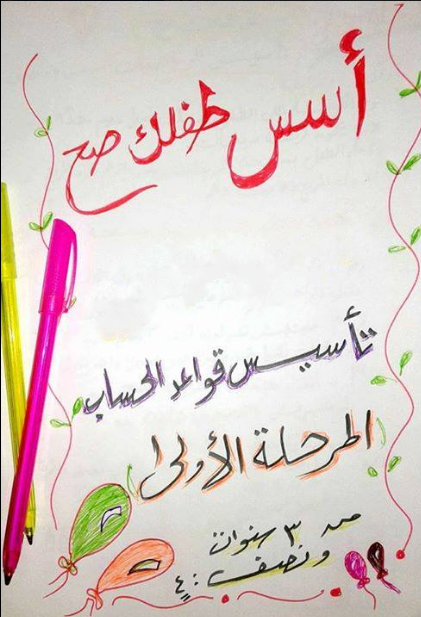 أسس طفلك صح
تأسيس قواعد الحساب
المرحلة الأولى
من ٣ سنوات
ونصف : ٤